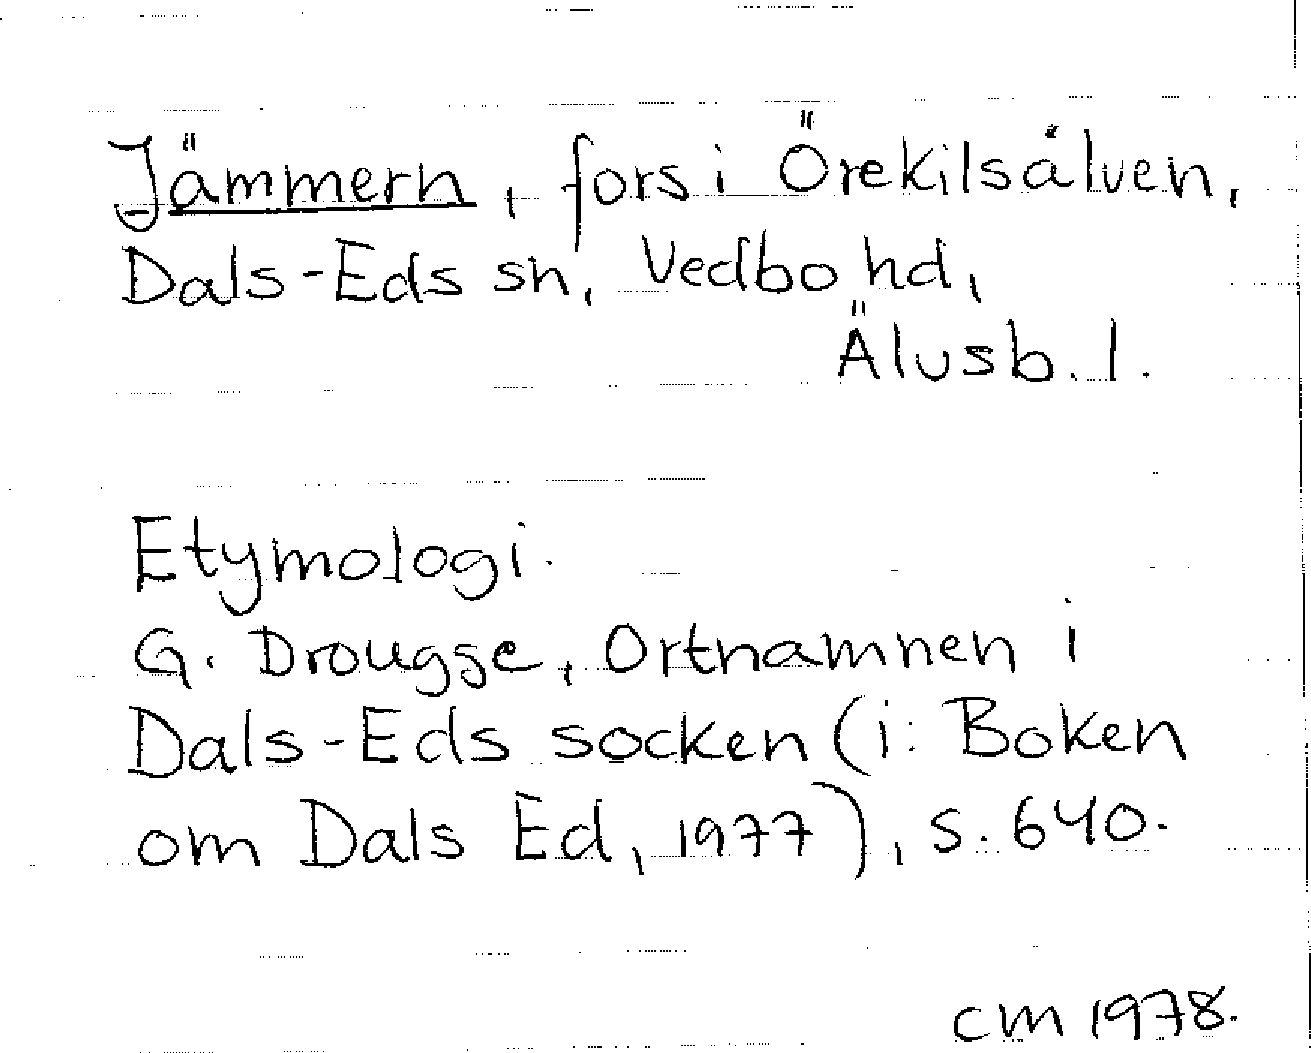 Jämmern, fors i Örekilsälven,
Dals-Eds sn, Vedbo hd,
Älvsb. l.
Etymologi.
G. Drougge, Ortnamnen i
Dals-Eds socken (i: Boken
om Dals Ed, 1977), s. 640.
CM 1978.